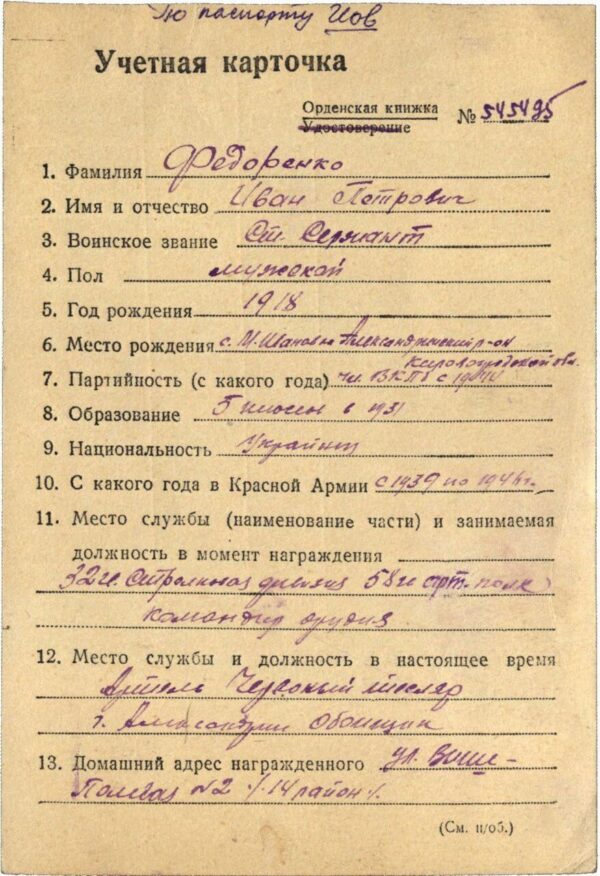 По паспорту Иов
Учетная карточка
Орденская книжка
Удостоверение
№ 545495
1. Фамилия Федоренко
2. Имя и отчество Иван Петрович
3. Воинское звание Ст. Сержант
4. Пол мужской
5. Год рождения 1918
6. Место рождения с. М. Ивановка Александрийский р-он
Кировоградской обл.
7. Партийность (с какого года) чл. ВКПб с 1944
8. Образование 5 классов в 1931
9. Национальность Украинец
10. С какого года в Красной Армии с 1939 по 1946 г.
11. Место службы (наименование части) и занимаемая
должность в момент награждения
32 гв. Стрелковая дивизия 58 гв арт. полк
командир орудия
12. Место службы и должность в настоящее время
Артель Червоный тесляр
г. Александрия
13. Домашний адрес награжденного ул.
№2 14 район
(См. н/об.)